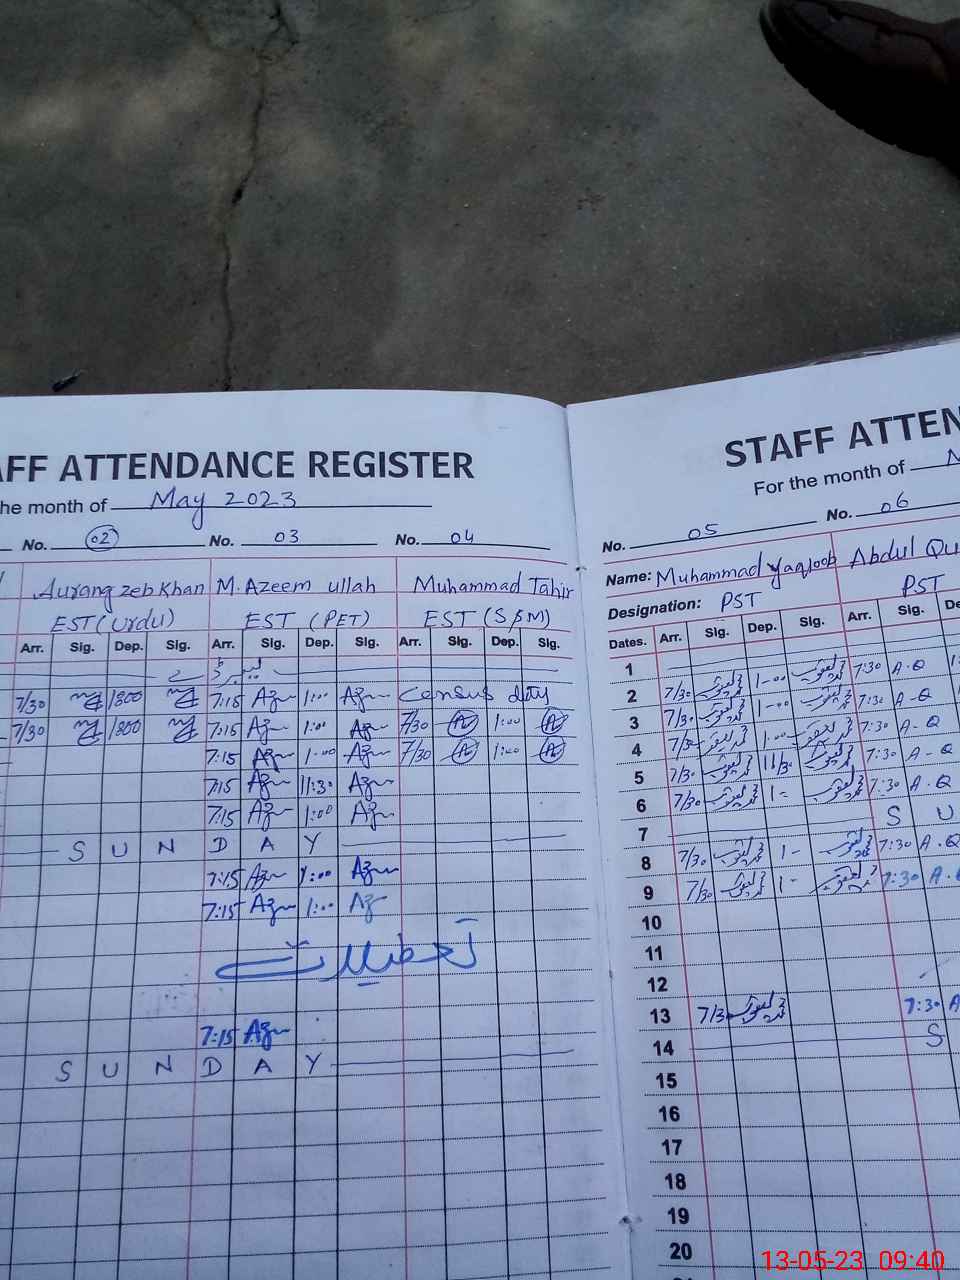 AFF ATTENDANCE REGISTER
the month of May 2023
No. 02 No. 03 No. 04
Aurangzeb Khan M. Azeem ullah Muhammad Tahir
EST (Urdu) EST (PET) EST (S&M)
Arr. Sig. Dep. Sig. Arr. Sig. Dep. Sig. Arr. Sig. Dep. Sig.
7/30 1300 7:15 Azm 1:00 Azm Census duty
7/30 1300 7:15 Azm 1:00 Azm 7/30 1:00
7:15 Azm 1:00 Azm 7/30 1:00
7:15 Azm 11:30 Azm
7:15 Azm 1:00 Azm
S U N D A Y
7:15 Azm 1:00 Azm
7:15 Azm 1:00 Az
تعطیلات
7:15 Azm
S U N D A Y
STAFF ATTEN
For the month of
No. 05 No. 06
Name: Muhammad Yaqoob Abdul Qu
Designation: PST PST
Dates. Arr. Sig. Dep. Sig. Arr. Sig. De
1
2 7/30 1-00 7:30 A.Q
3 7/30 1-00 7:30 A.Q
4 7/30 1:00 7:30 A-Q
5 7/30 11/30 7:30 A-Q
6 7/30 1- 7:30 A.Q
7 S U
8 7/30 1- 7:30 A.Q
9 7/30 1- 7:30 A.
10
11
12
13 7/30 7:30 A
14 S
15
16
17
18
19
20
13-05-23 09:40